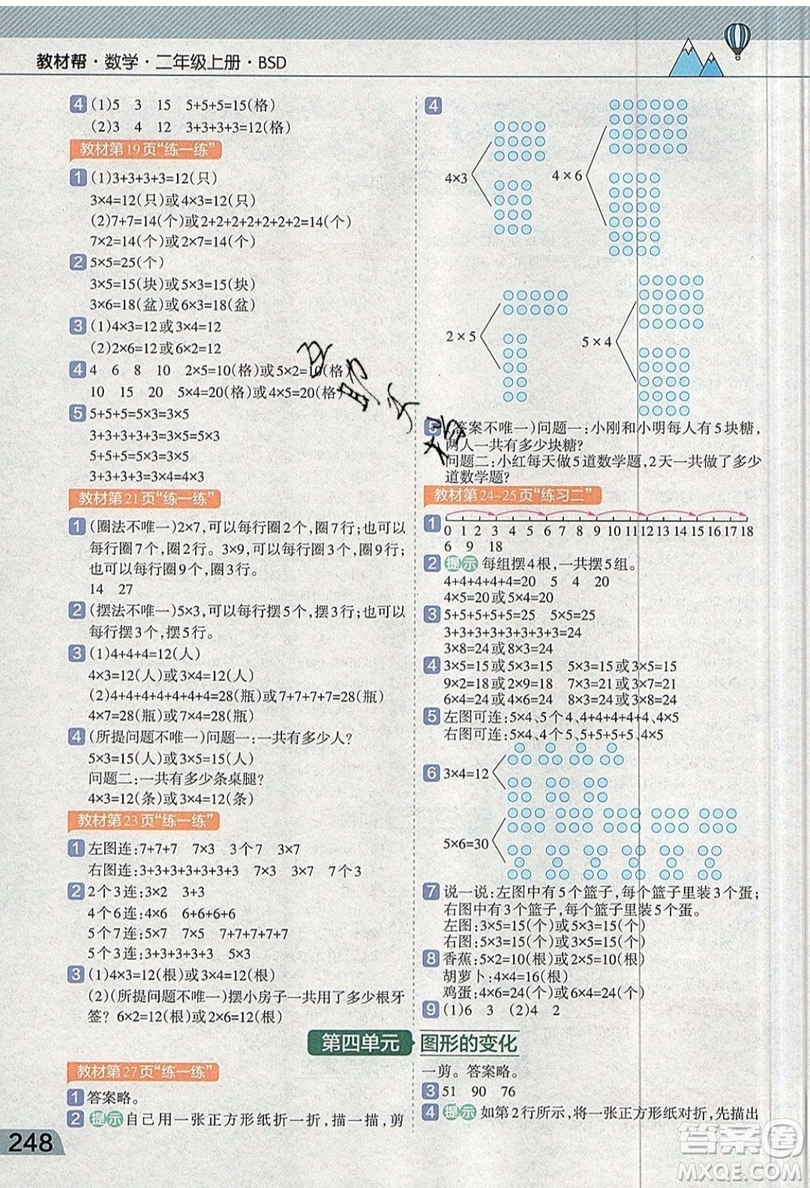 教材帮·数学·二年级上册·BSD
4 (1)5 3 15 5+5+5=15(格)
(2)3 4 12 3+3+3+3=12(格)
教材第19页“练一练”
1 (1)3+3+3+3=12(只)
3×4=12(只)或4×3=12(只)
(2)7+7=14(个)或2+2+2+2+2+2+2=14(个)
7×2=14(个)或2×7=14(个)
2 5×5=25(个)
3×5=15(块)或5×3=15(块)
3×6=18(盆)或6×3=18(盆)
3 (1)4×3=12或3×4=12
(2)2×6=12或6×2=12
4 4 6 8 10 2×5=10(格)或5×2=10(格)
10 15 20 5×4=20(格)或4×5=20(格)
5 5+5+5=5×3=3×5
3+3+3+3+3=3×5=5×3
5+5+5=5×3=3×5
3+3+3+3=3×4=4×3
教材第21页“练一练”
1 (圈法不唯一)2×7,可以每行圈2个,圈7行;也可以
每行圈7个,圈2行。3×9,可以每行圈3个,圈9行;
也可以每行圈9个,圈3行。
14 27
2 (摆法不唯一)5×3,可以每行摆5个,摆3行;也可以
每行摆3个,摆5行。
3 (1)4+4+4=12(人)
4×3=12(人)或3×4=12(人)
(2)4+4+4+4+4+4+4=28(瓶)或7+7+7+7=28(瓶)
4×7=28(瓶)或7×4=28(瓶)
4 (所提问题不唯一)问题一:一共有多少人?
5×3=15(人)或3×5=15(人)
问题二:一共有多少条桌腿?
4×3=12(条)或3×4=12(条)
教材第23页“练一练”
1 左图连:7+7+7 7×3 3个7 3×7
右图连:3+3+3+3+3+3+3 7×3 7个3 3×7
2 2个3连:3×2 3+3
4个6连:4×6 6+6+6+6
5个7连:5×7 7×5 7+7+7+7+7
5个3连:3+3+3+3+3 5×3
3 (1)4×3=12(根)或3×4=12(根)
(2)(所提问题不唯一)摆小房子一共用了多少根牙
签? 6×2=12(根)或2×6=12(根)
4
4×3
4×6
2×5
5×4
5 (答案不唯一)问题一:小刚和小明每人有5块糖,
两人一共有多少块糖?
问题二:小红每天做5道数学题,2天一共做了多少
道数学题?
教材第24~25页“练习二”
1 0 1 2 3 4 5 6 7 8 9 10 11 12 13 14 15 16 17 18
6 9 18
2 提示 每组摆4根,一共摆5组。
4+4+4+4+4=20 5 4 20
4×5=20或5×4=20
3 5+5+5+5+5=25 5×5=25
3+3+3+3+3+3+3+3=24
3×8=24或8×3=24
4 3×5=15或5×3=15 5×3=15或3×5=15
9×2=18或2×9=18 8×3=24或3×8=24
6×4=24或4×6=24
5 左图可连:5×4、5个4、4+4+4+4+4、4×5
右图可连:5×4、4个5、5+5+5+5、4×5
6 3×4=12
5×6=30
7 说一说:左图中有5个篮子,每个篮子里装3个蛋;
右图中有3个篮子,每个篮子里装5个蛋。
左图:3×5=15(个)或5×3=15(个)
右图:5×3=15(个)或3×5=15(个)
8 香蕉:5×4=20(个)或4×5=20(个)
胡萝卜:4×4=16(个)
鸡蛋:4×6=24(个)或6×4=24(个)
9 (1)6 3 (2)4 2
第四单元 图形的变化
教材第27页“练一练”
1 答案略。
2 提示 自己用一张正方形纸折一折,描一描,剪
一剪。答案略。
3 51 90 76
4 提示 如第2行所示,将一张正方形纸对折,先描出
248
答案圈
MXQE.COM